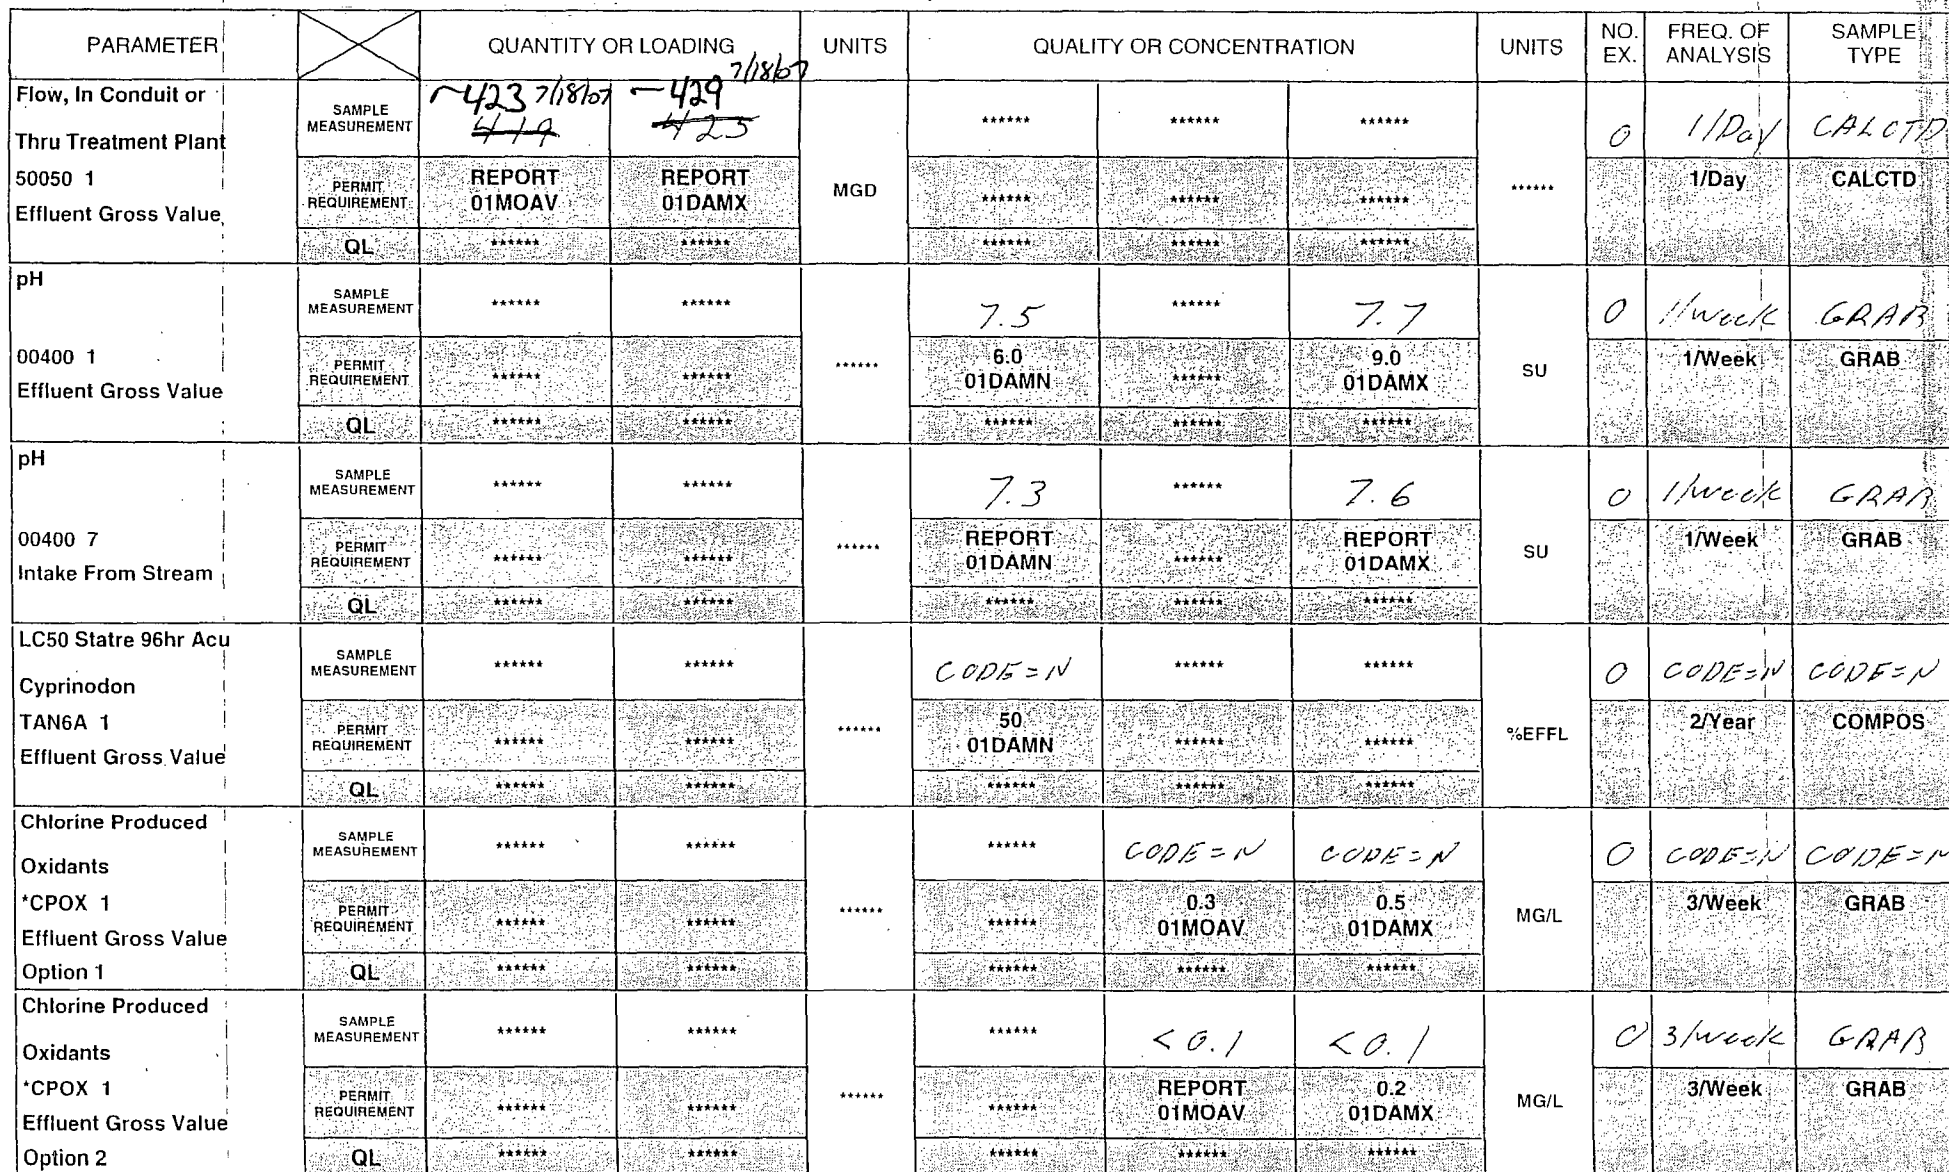 PARAMETER QUANTITY OR LOADING UNITS QUALITY OR CONCENTRATION UNITS NO. EX. FREQ. OF ANALYSIS SAMPLE TYPE
7/18/07
Flow, In Conduit or
Thru Treatment Plant
50050 1
Effluent Gross Value
SAMPLE MEASUREMENT ~423 7/18/07 419 ~429 425 ****** ****** ****** 0 1/Day CALCTD
PERMIT REQUIREMENT REPORT 01MOAV REPORT 01DAMX MGD ****** ****** ****** ****** 1/Day CALCTD
QL ****** ****** ****** ****** ******
pH
00400 1
Effluent Gross Value
SAMPLE MEASUREMENT ****** ****** 7.5 ****** 7.7 0 1/Week GRAB
PERMIT REQUIREMENT ****** ****** ****** 6.0 01DAMN ****** 9.0 01DAMX SU 1/Week GRAB
QL ****** ****** ****** ****** ******
pH
00400 7
Intake From Stream
SAMPLE MEASUREMENT ****** ****** 7.3 ****** 7.6 0 1/week GRAB
PERMIT REQUIREMENT ****** ****** ****** REPORT 01DAMN ****** REPORT 01DAMX SU 1/Week GRAB
QL ****** ****** ****** ****** ******
LC50 Statre 96hr Acu
Cyprinodon
TAN6A 1
Effluent Gross Value
SAMPLE MEASUREMENT ****** ****** CODE=N ****** ****** 0 CODE=N CODE=N
PERMIT REQUIREMENT ****** ****** ****** 50 01DAMN ****** ****** %EFFL 2/Year COMPOS
QL ****** ****** ****** ****** ******
Chlorine Produced
Oxidants
*CPOX 1
Effluent Gross Value
Option 1
SAMPLE MEASUREMENT ****** ****** ****** CODE=N CODE=N 0 CODE=N CODE=N
PERMIT REQUIREMENT ****** ****** ****** ****** 0.3 01MOAV 0.5 01DAMX MG/L 3/Week GRAB
QL ****** ****** ****** ****** ******
Chlorine Produced
Oxidants
*CPOX 1
Effluent Gross Value
Option 2
SAMPLE MEASUREMENT ****** ****** ****** <0.1 <0.1 0 3/week GRAB
PERMIT REQUIREMENT ****** ****** ****** ****** REPORT 01MOAV 0.2 01DAMX MG/L 3/Week GRAB
QL ****** ****** ****** ****** ******